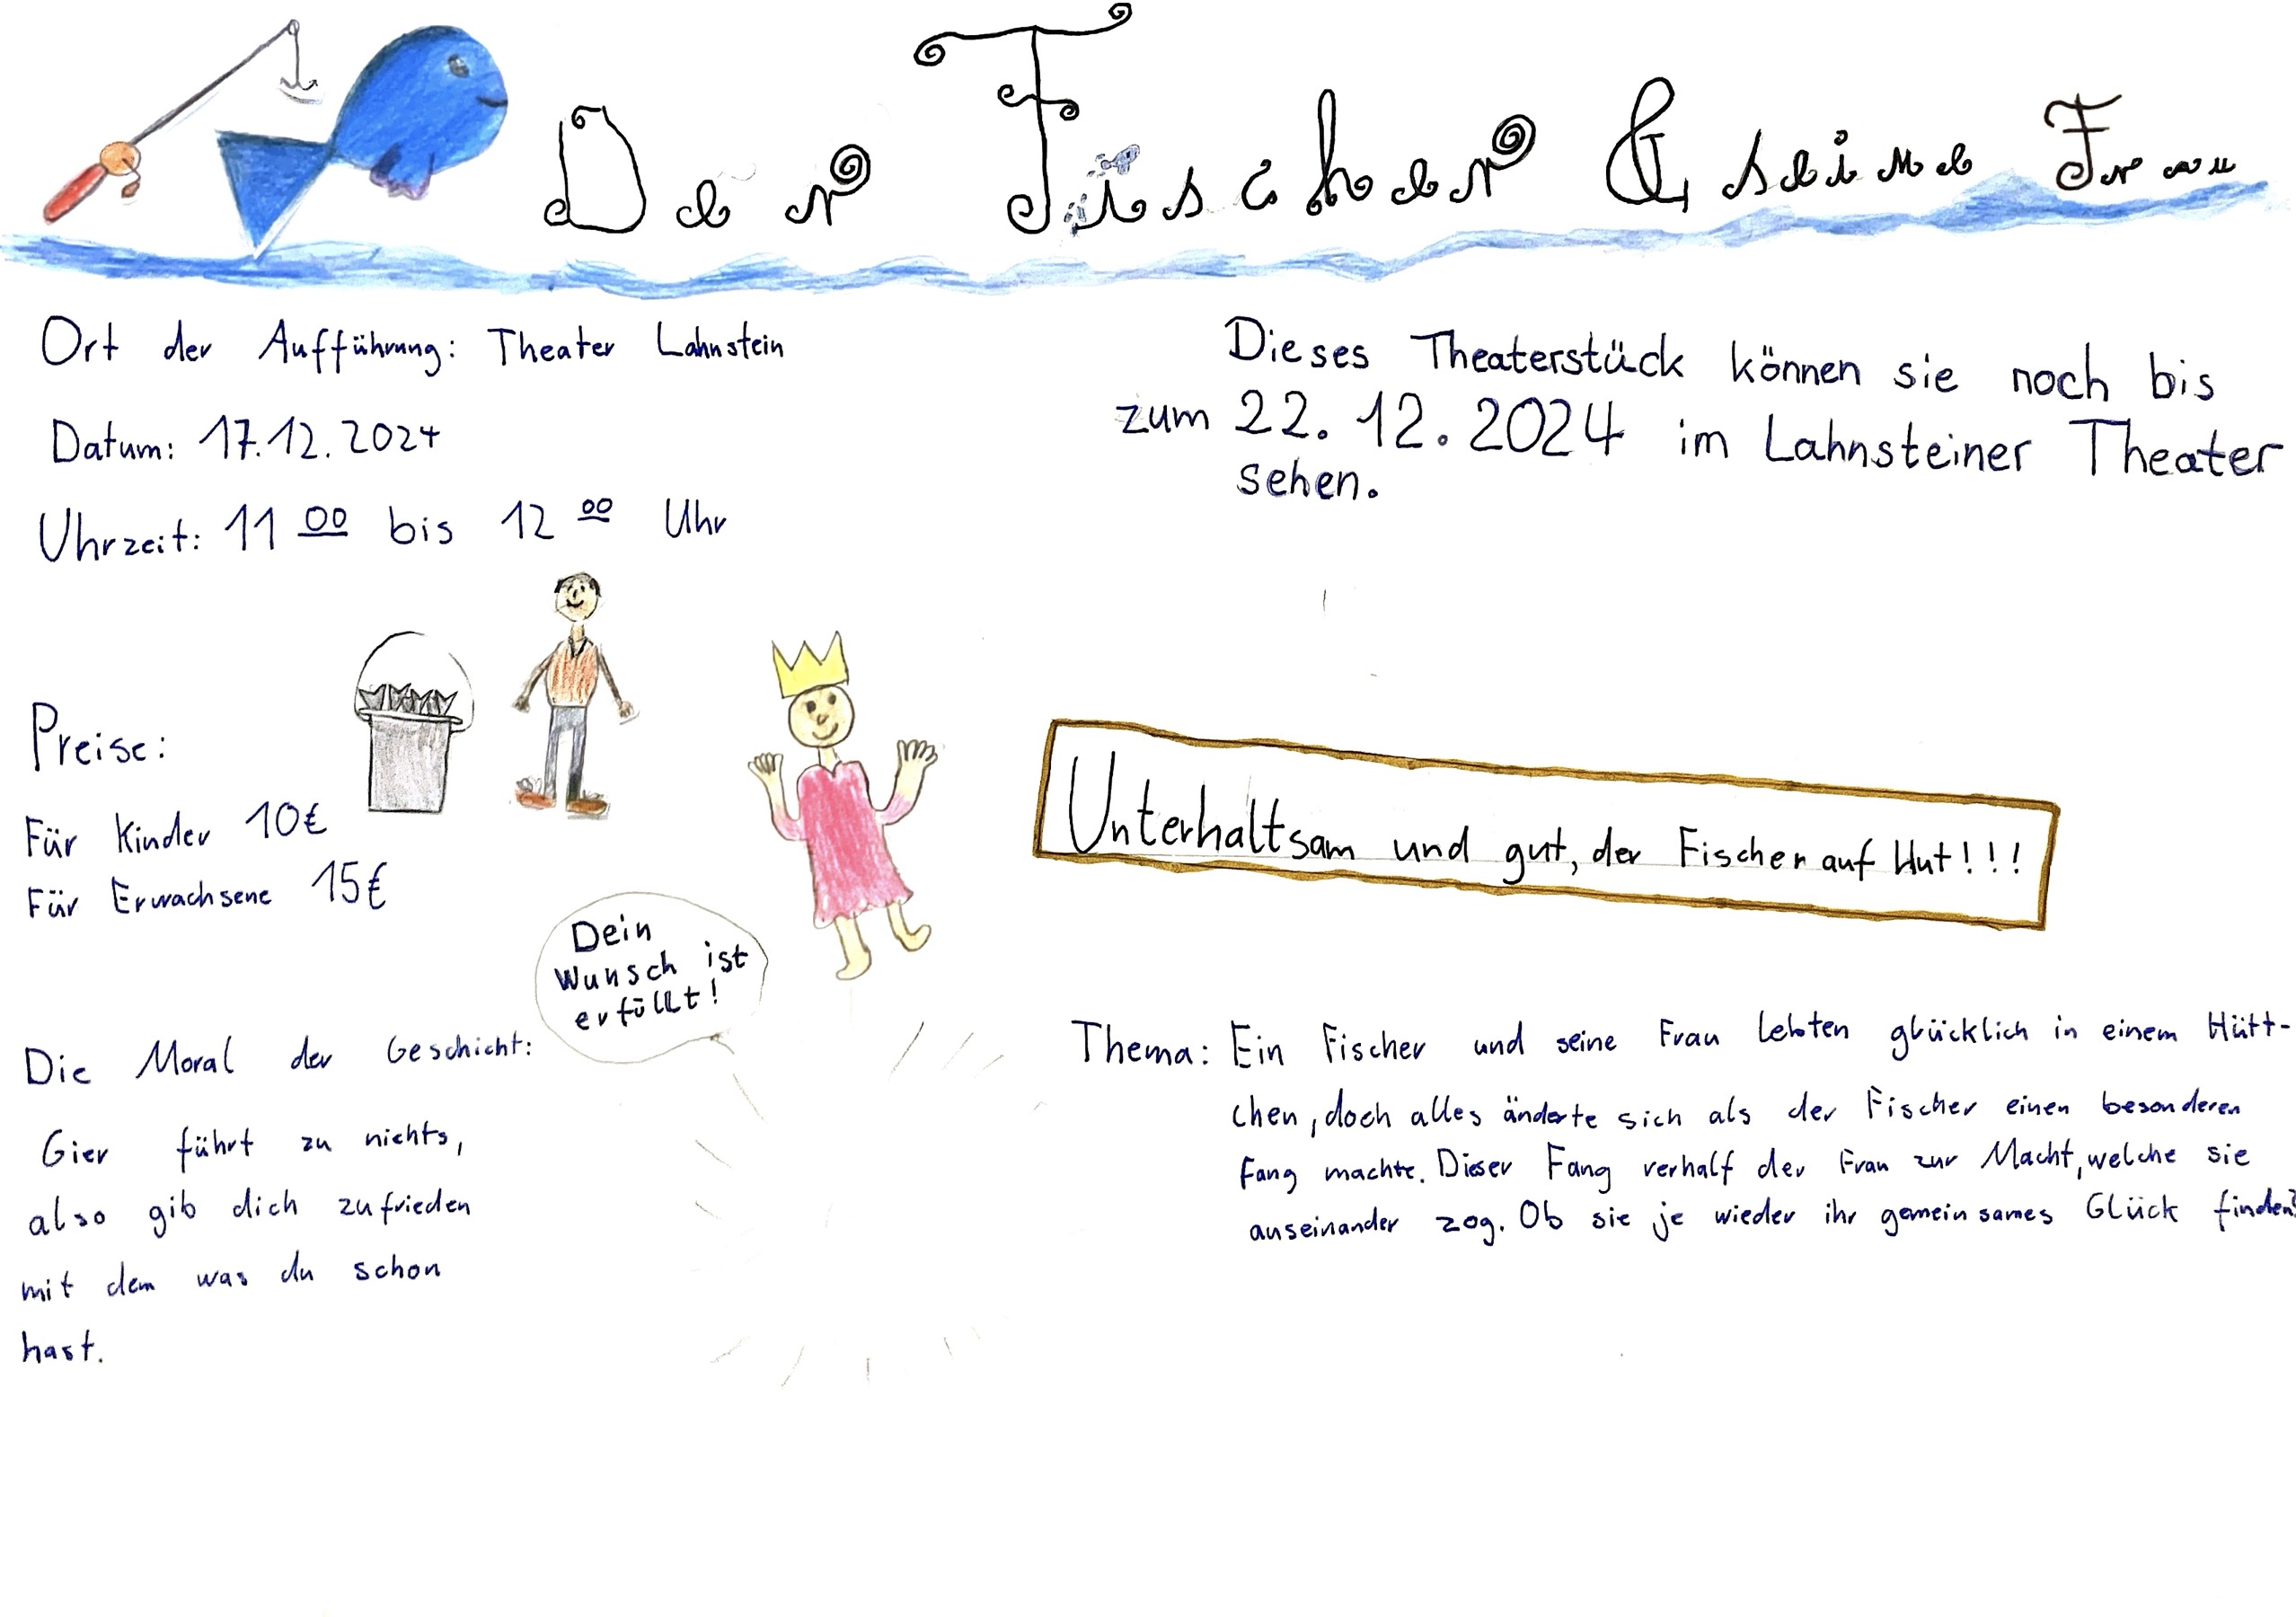 Der Fischer & seine Frau
Ort der Aufführung: Theater Lahnstein
Datum: 17.12.2024
Uhrzeit: 11 00 bis 12 00 Uhr
Dieses Theaterstück können sie noch bis
zum 22. 12. 2024 im Lahnsteiner Theater
sehen.
Preise:
Für Kinder 10€
Für Erwachsene 15€
Unterhaltsam und gut, der Fischer auf Hut!!!
Dein
Wunsch ist
erfüllt!
Die Moral der Geschicht:
Gier führt zu nichts,
also gib dich zufrieden
mit dem was du schon
hast.
Thema: Ein Fischer und seine Frau lebten glücklich in einem Hütt-
chen, doch alles änderte sich als der Fischer einen besonderen
Fang machte. Dieser Fang verhalf der Frau zur Macht, welche sie
auseinander zog. Ob sie je wieder ihr gemeinsames Glück finden?